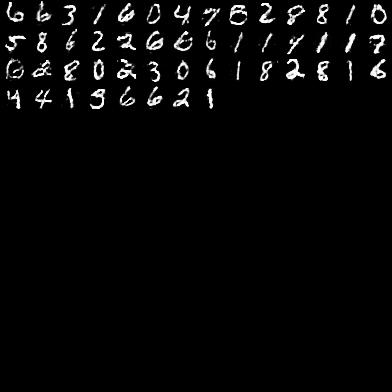 6 6 3 1 6 0 4 7 8 2 8 8 1 0
5 8 6 2 2 6 6 6 1 1 1 1 1 7
0 2 8 0 2 3 0 6 1 8 2 8 1 6
4 4 1 9 6 6 2 1